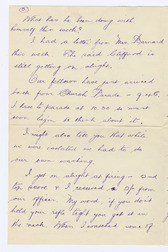 What has he been doing with
himself this week?
I had a letter from Mrs Barnard
this week. She said Clifford is
still getting on alright.
Our fellows have just arrived
back from Church Parade - 9.45.
I have to parade at 10.20 so must
soon begin to think about it.
I might also tell you that while
we were isolated we had to do
our own washing.
I got on alright at firing - and
too above I received off from
our officer. My word, if you don't
hold your rifle tight you get it in
the neck. When I searched one of